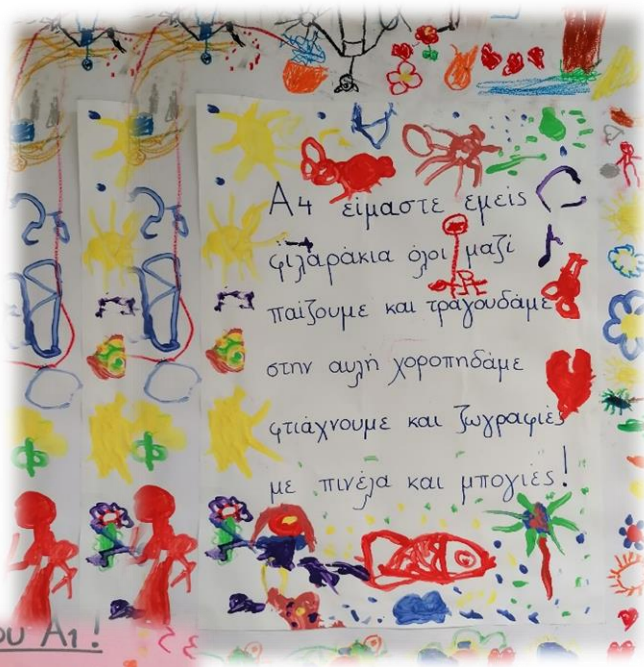 Α4 είμαστε εμείς
φιλαράκια όλοι μαζί
παίζουμε και τραγουδάμε
στην αυλή χοροπηδάμε
φτιάχνουμε και ζωγραφιές
με πινέλα και μπογιές!
ου Α1!